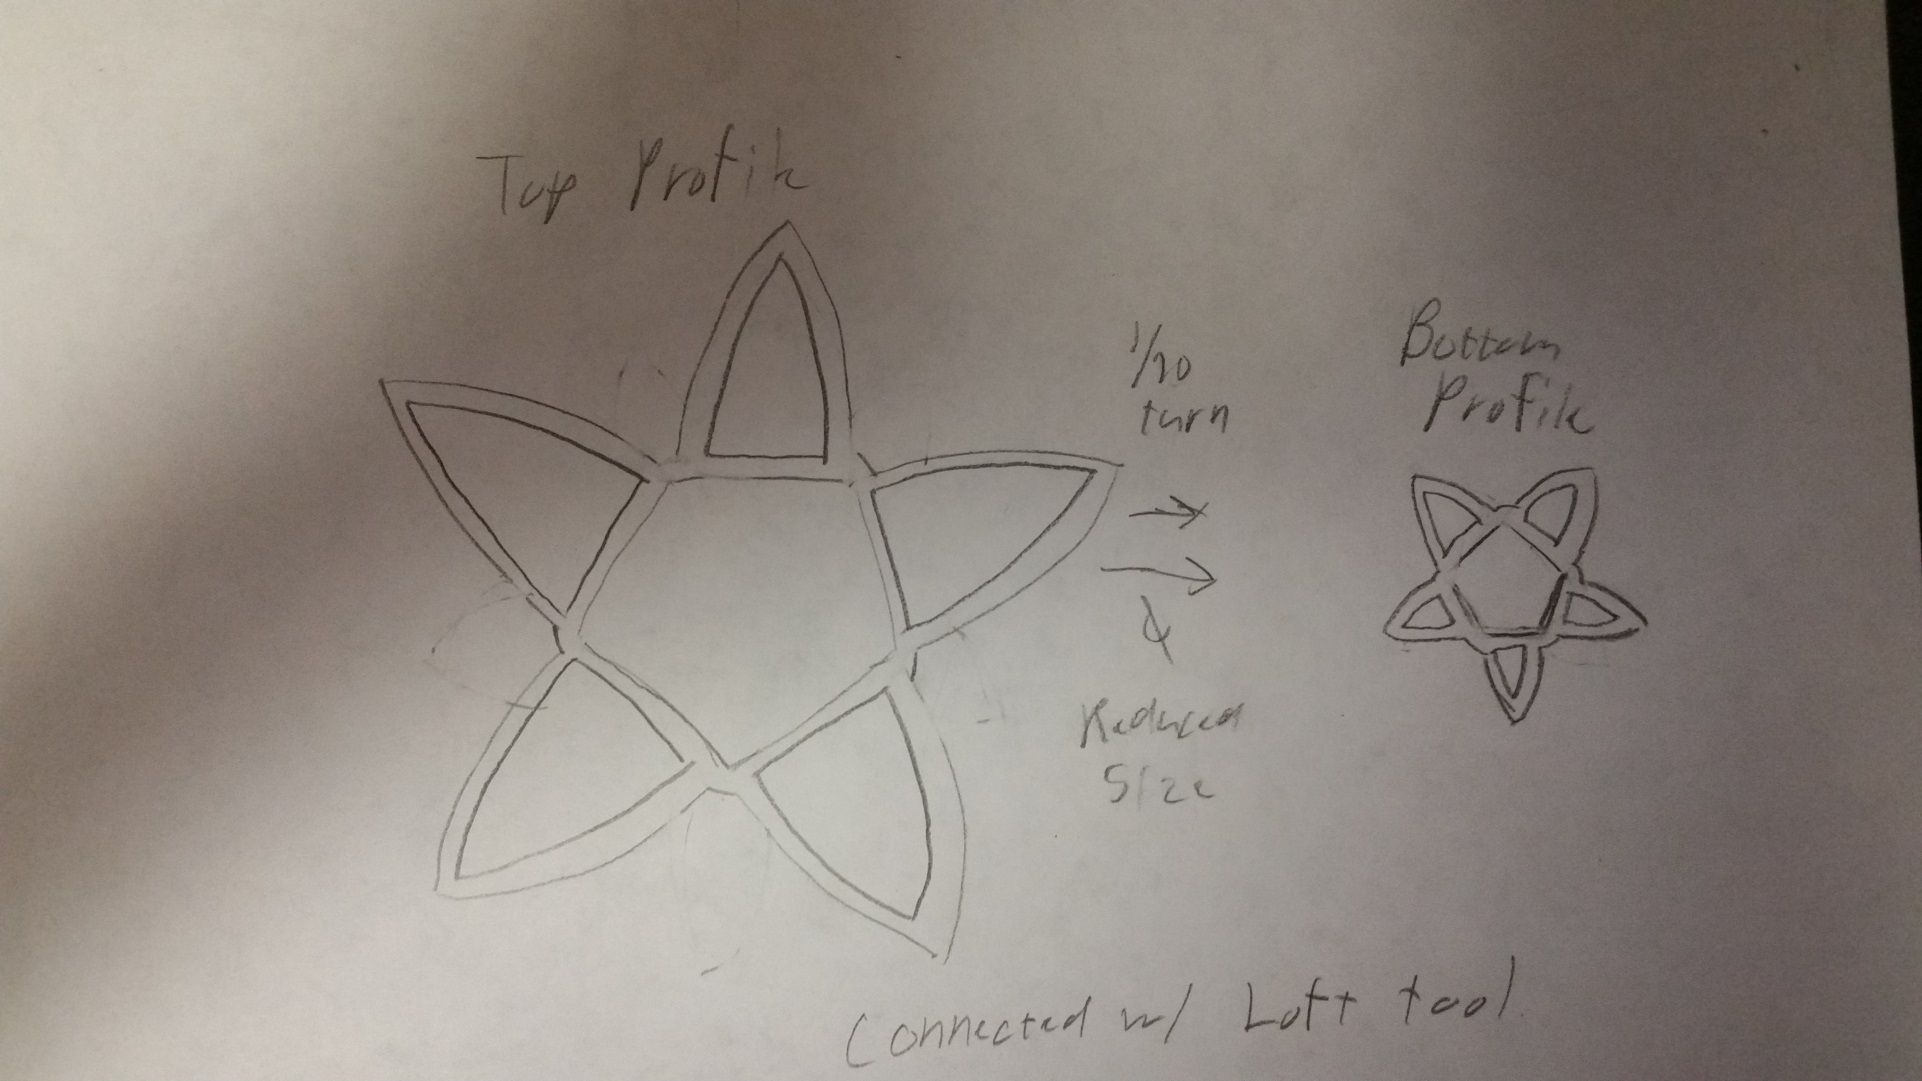 Top Profile
1/10
turn
&
Reduced
Size
Bottom
Profile
Connected w/ Loft tool